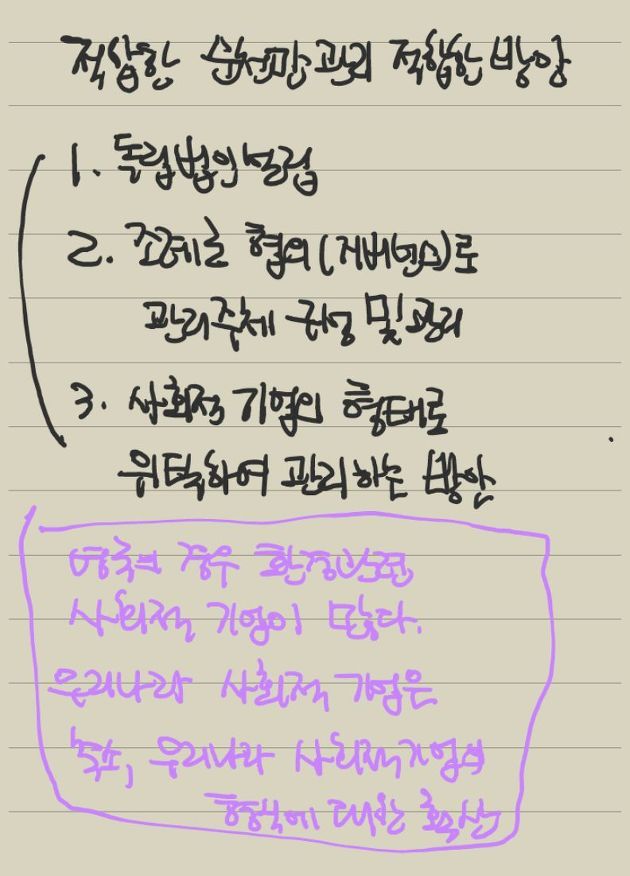 적합한 순천만 관리 적합한 방향
1. 독립법인설립
2. 조례로 협의(거버넌스)로
관리주체 구성 및 관리
3. 사회적 기업의 형태로
위탁하여 관리하는 방안
영국의 경우 환경관련
사회적 기업이 많다.
우리나라 사회적 기업은
우리나라 사회적기업의